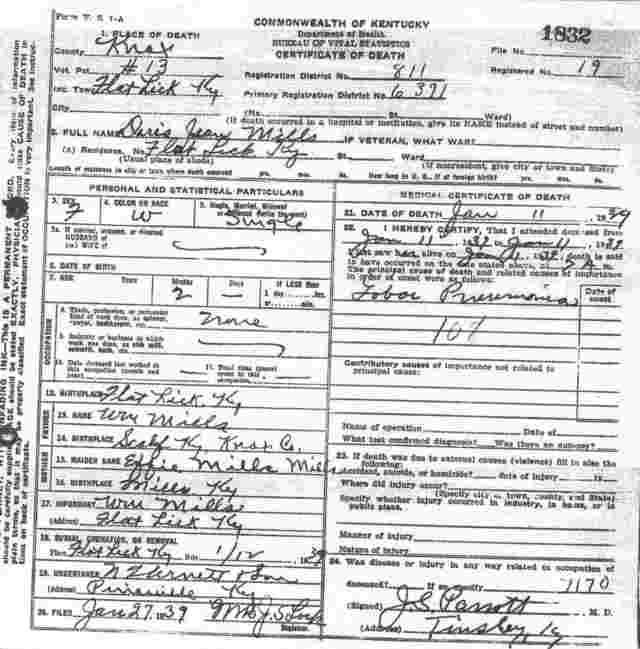 Form V. S. 1-A
COMMONWEALTH OF KENTUCKY
Department of Health
BUREAU OF VITAL STATISTICS
CERTIFICATE OF DEATH
1832
File No.
Registered No. 19
1. PLACE OF DEATH
County Knox
Vot. Pct. #13
Inc. Town Flat Lick Ky
City
Registration District No. 811
Primary Registration District No. 6391
(No. St. Ward)
(If death occurred in a hospital or institution, give its NAME instead of street and number)
2. FULL NAME Doris Jean Mills IF VETERAN, WHAT WAR
(a) Residence. No. Flat Lick Ky St. Ward
(Usual place of abode) (If nonresident, give city or town and State)
Length of residence in city or town where death occurred yrs. mos. ds. How long in U. S., if of foreign birth? yrs. mos. ds.
PERSONAL AND STATISTICAL PARTICULARS
3. SEX F
4. COLOR OR RACE W
5. Single, Married, Widowed or Divorced (write the word) Single
5a. If married, widowed, or divorced
HUSBAND of
(or) WIFE of
6. DATE OF BIRTH
7. AGE Years Months 2 Days — If LESS than 1 day, hrs. or min.
OCCUPATION
8. Trade, profession, or particular kind of work done, as spinner, sawyer, bookkeeper, etc. None
9. Industry or business in which work was done, as silk mill, sawmill, bank, etc.
10. Date deceased last worked at this occupation (month and year)
11. Total time (years) spent in this occupation
12. BIRTHPLACE Flat Lick, Ky
FATHER
13. NAME Wm Mills
14. BIRTHPLACE Scalf Ky, Knox Co.
MOTHER
15. MAIDEN NAME Effie Mills Mills
16. BIRTHPLACE Mills Ky
17. INFORMANT Wm Mills
(Address) Flat Lick Ky
18. BURIAL, CREMATION, OR REMOVAL
Place Flat Lick Ky Date 1/12 1939
19. UNDERTAKER
(Address) Ky
20. FILED Jan 27 1939 Mrs J. S.
Registrar
MEDICAL CERTIFICATE OF DEATH
21. DATE OF DEATH Jan 11 1939
22. I HEREBY CERTIFY, That I attended deceased from
Jan 11
death is said
to have occurred on the date stated above, at
The principal cause of death and related causes of importance
in order of onset were as follows:
Date of onset
Lobar Pneumonia
107
Contributory causes of importance not related to
principal cause:
Name of operation Date of
What test confirmed diagnosis? Was there an autopsy?
23. If death was due to external causes (violence) fill in also the
following:
Accident, suicide, or homicide? date of injury 19
Where did injury occur?
(Specify city or town, county, and State)
Specify whether injury occurred in industry, in home, or in
public place.
Manner of injury
Nature of injury
24. Was disease or injury in any way related to occupation of
deceased? If so, specify 1170
(Signed) J.S. Parrott M. D.
(Address) Tinsley, Ky